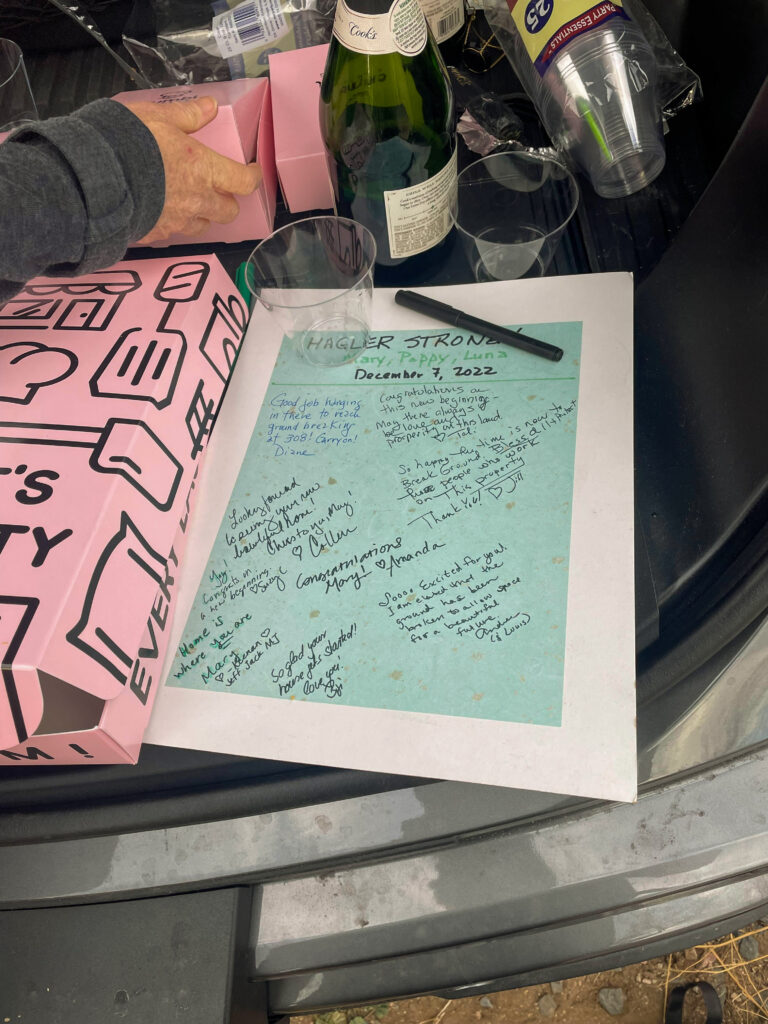 Cook's
25
PARTY ESSENTIALS
HAGLER STRONG!
Mary, Pappy, Luna
December 7, 2022
Good job hanging
in there to reach
ground breaking
at 308! Carry on!
Diane
Congratulations on
this new beginning -
May there always
be love and
prosperity on this land.
♡ Tal.
So happy the time is now to
Break Ground. Blessed
people who work
on This property
Thank You! ♡ Jill
Looking forward
to seeing your new
beautiful home!
Cheers to you, Mary!
♡ Colleen
Congratulations
Mary! ♡ Amanda
Mary!
Congrats on
a new beginning.
Home is
where you are
Mary
♡ - Keenan ♡
Jeff Jack MJ
So glad your
house gets started!!
love you.
Soooo Excited for you!
I am elated that the
ground has been
broken to allow space
for a beautiful
future
(& Louis)
'S
TY
EVERY
M!